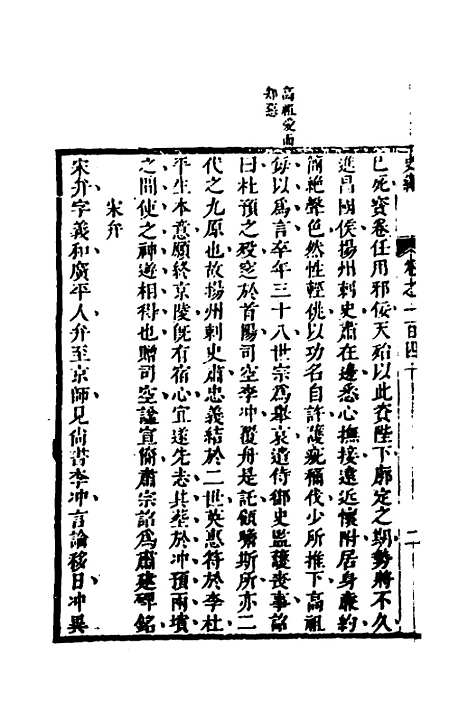 高祖愛而
知惡
史緯
卷之一百四十
二
已死寶卷任用邪佞天殆以此資陛下廓定之期勢將不久
進昌國侯揚州刺史肅在邊悉心撫接遠近懷附居身廉約
簡絶聲色然性輕佻以功名自許護疵稱伐少所推下高祖
每以爲言卒年三十八世宗爲舉哀遣侍御史監護喪事詔
曰杜預之歿窆於首陽司空李冲覆舟是託顧瞻斯所亦二
代之九原也故揚州刺史肅忠義結於二世英惠符於李杜
平生本意願終京陵既有宿心宜遂先志其塟於冲預兩墳
之間使之神遊相得也贈司空諡宣簡肅宗詔爲肅建碑銘
宋弁
宋弁字義和廣平人弁至京師見尚書李冲言論移日冲異